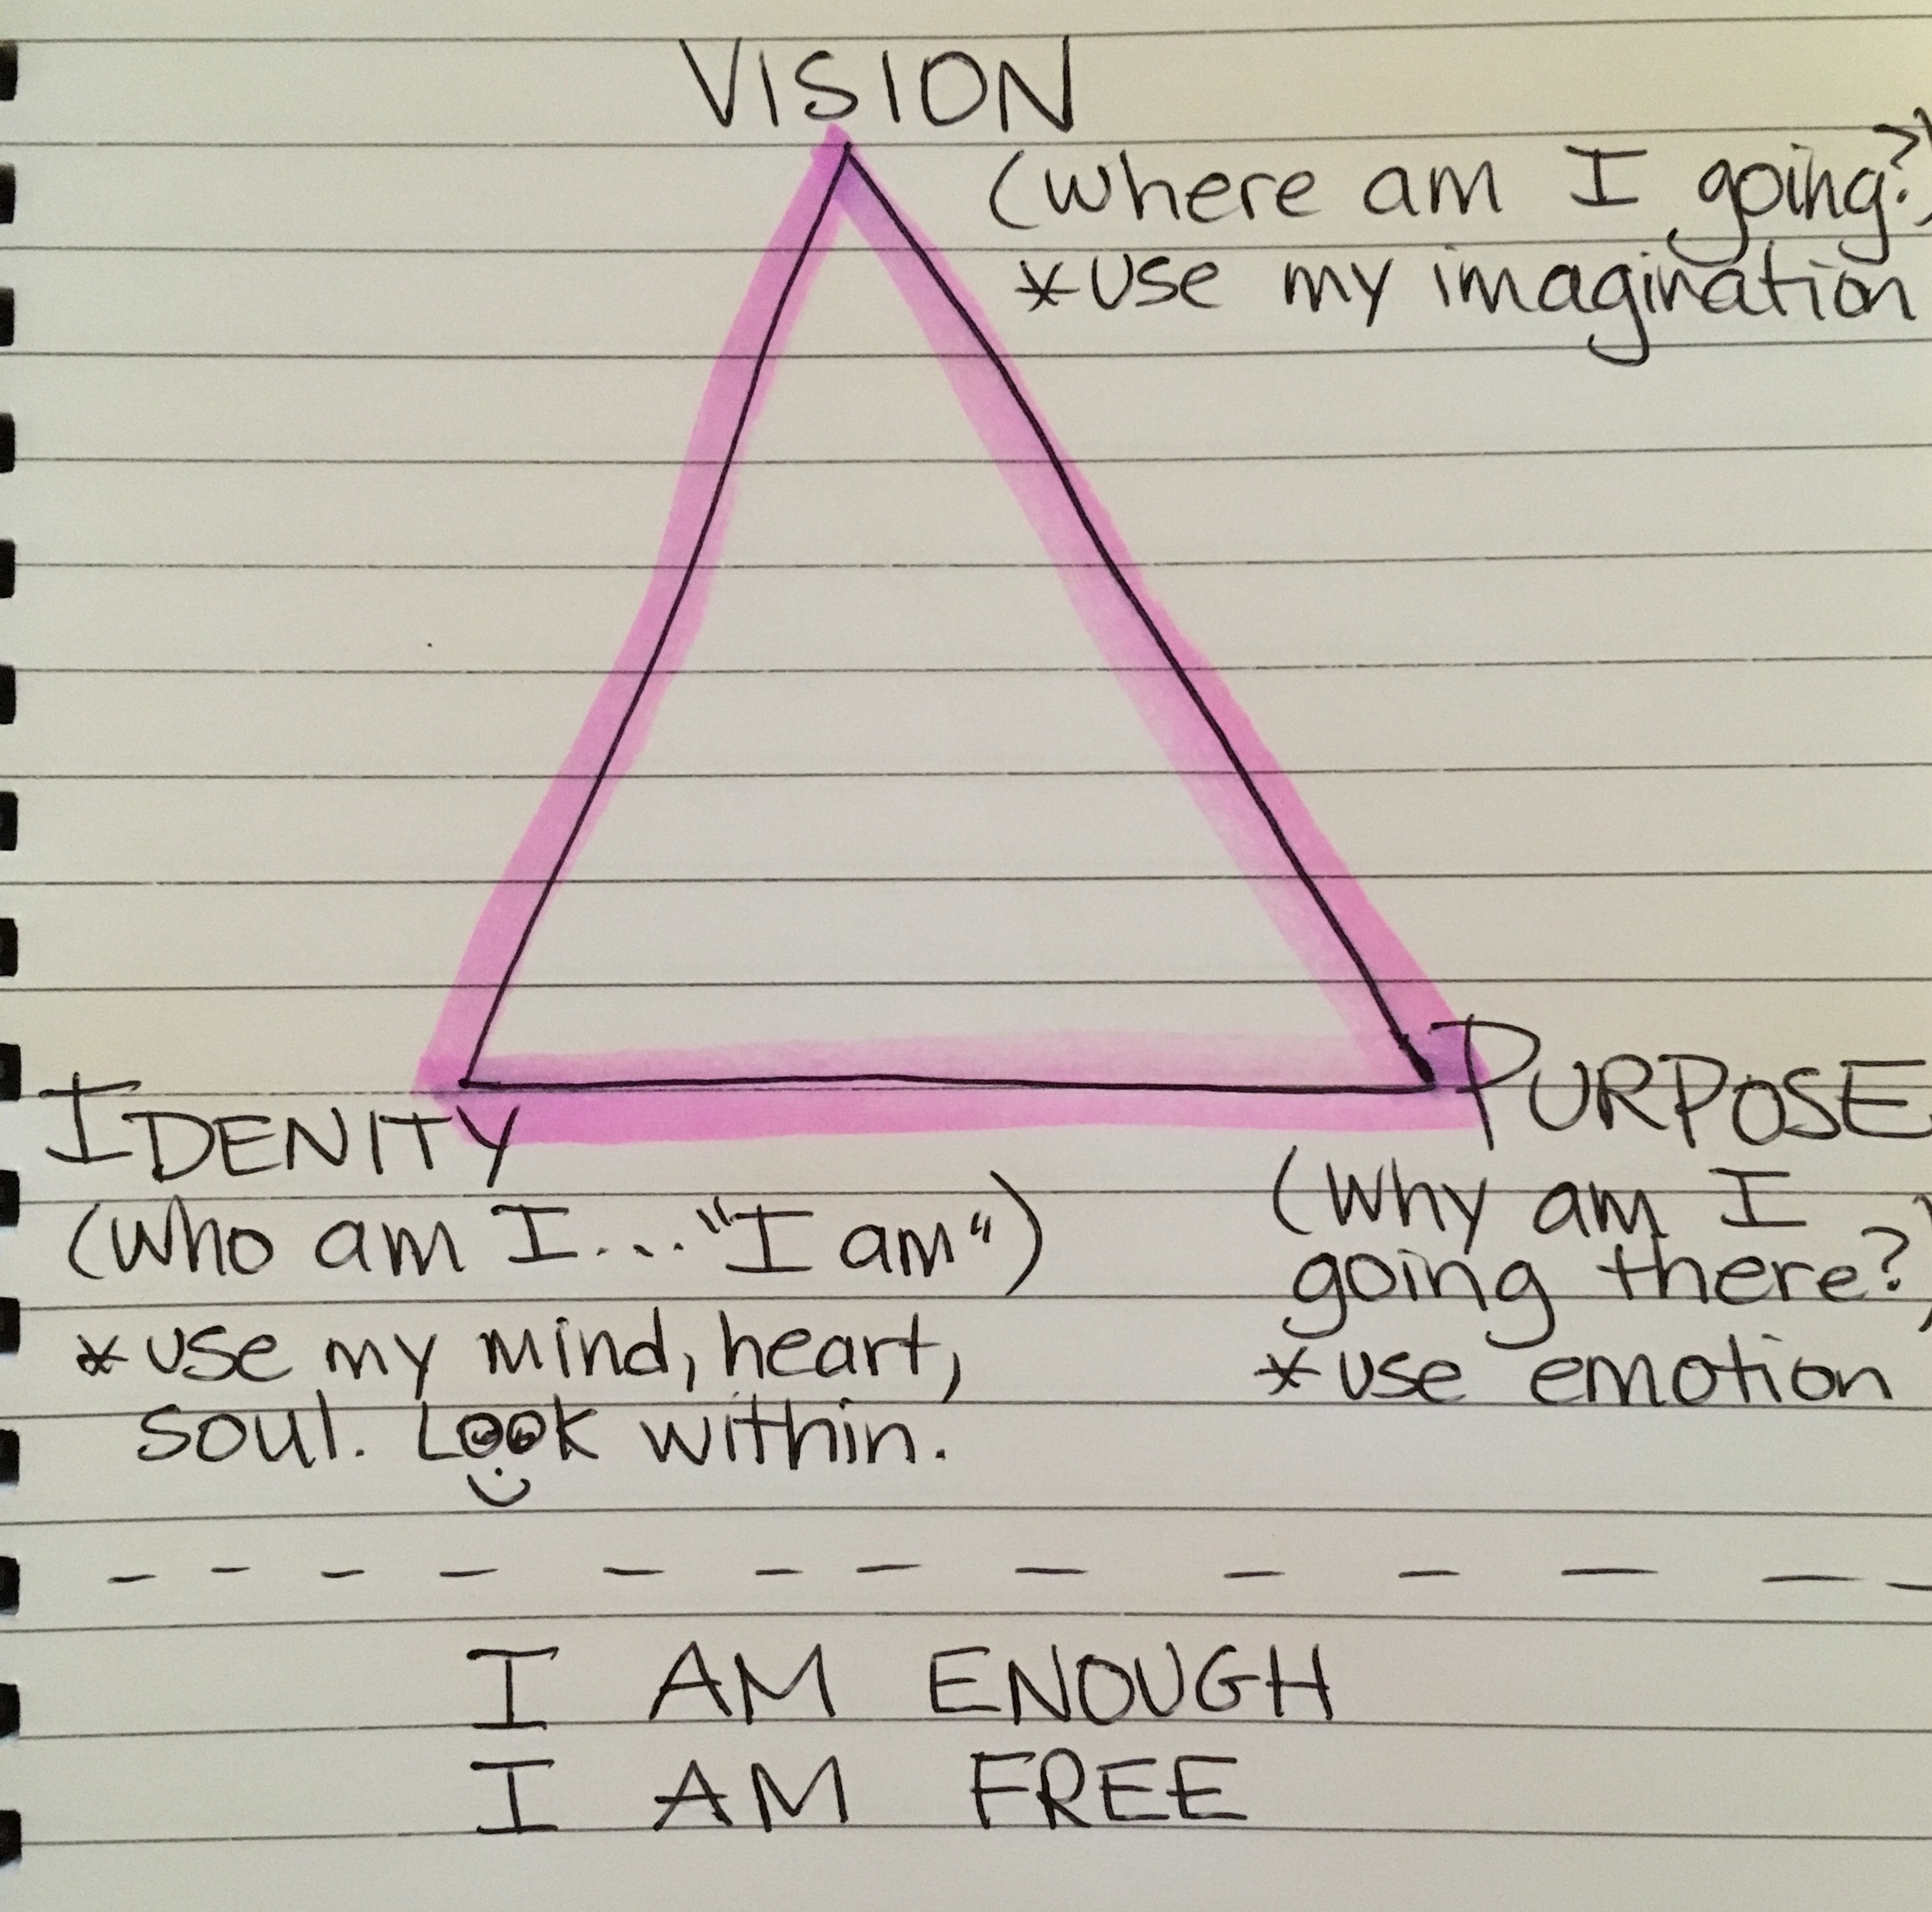 VISION
(where am I going?)
*use my imagination
IDENITY
(Who am I...."I am")
*use my mind, heart,
soul. Look within.
PURPOSE
(Why am I
going there?)
*use emotion
I AM ENOUGH
I AM FREE